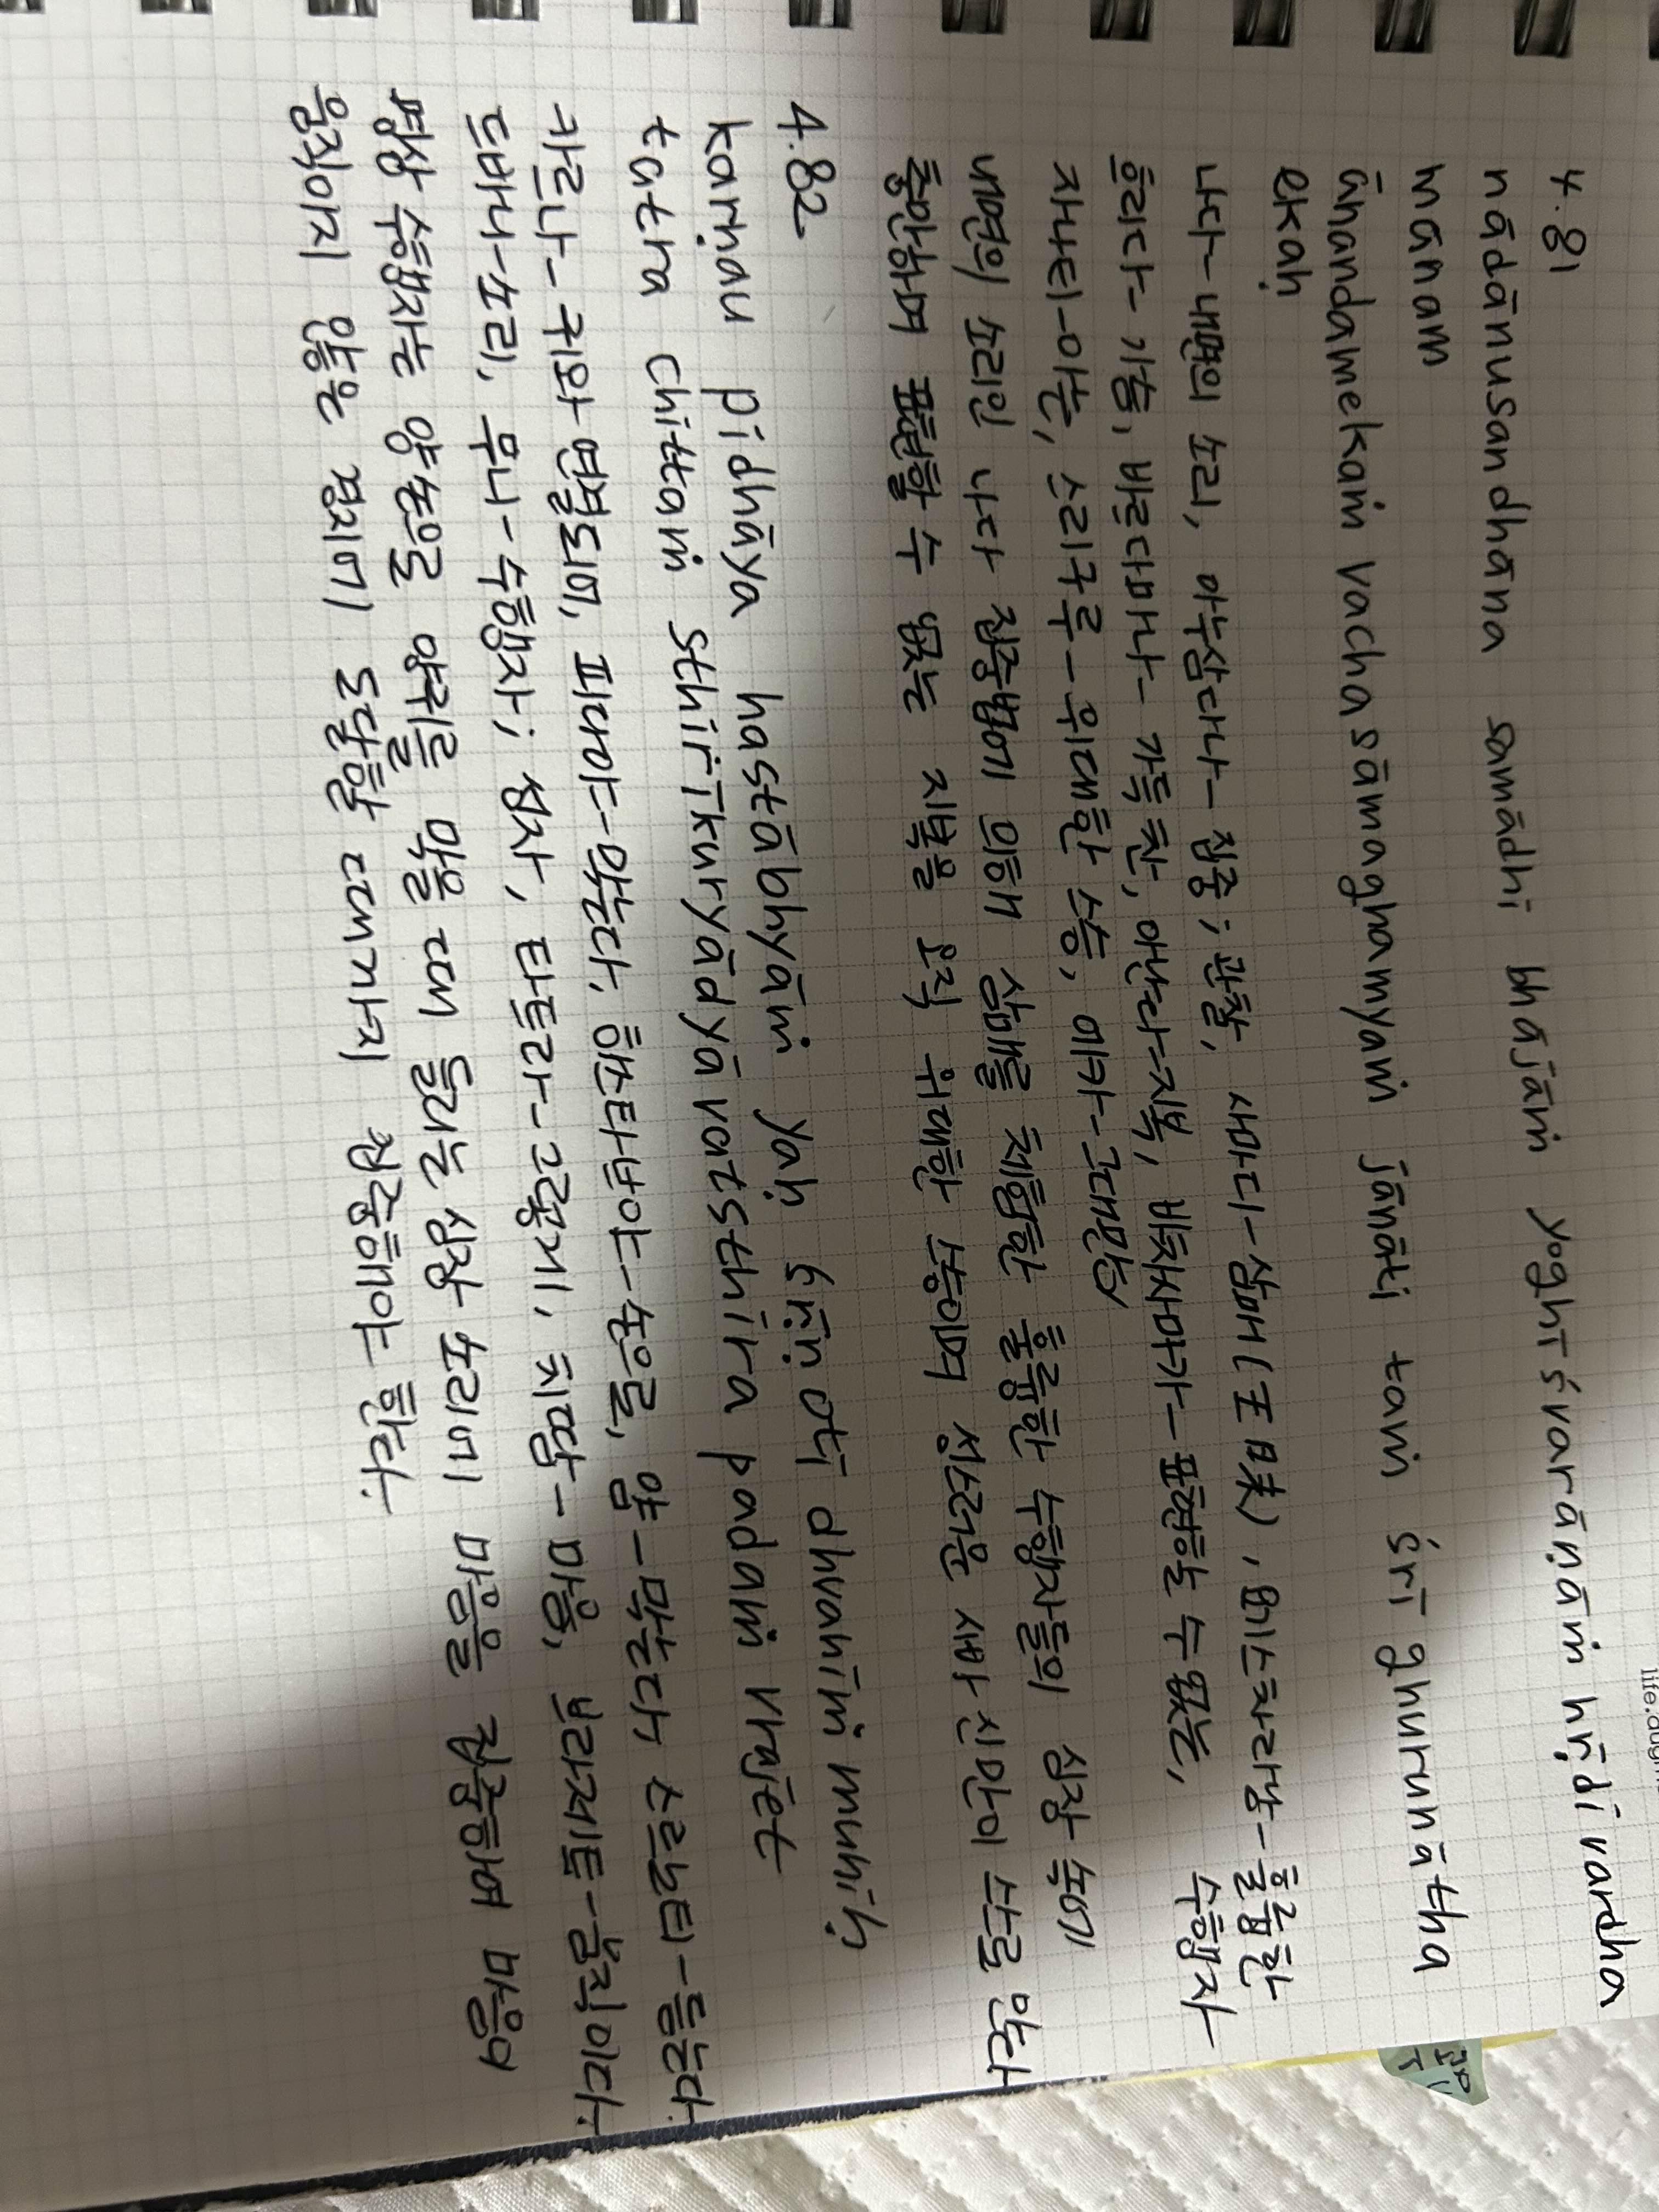 4.81
nādānusandhāna samādhi bhājāṁ yoghīśvarāṇāṁ hṛdi vardha
mānam
ānandamekaṁ vachasāmaghamyaṁ jānāti taṁ śrī ghurunātha
ekaḥ
나다-내면의 소리, 아누삼다나- 집중; 관찰, 사마디-삼매(三昧), 요기스차라남-훌륭한 수행자
흐리다- 가슴, 바르다마나- 가득 찬, 아난다-지복, 바차사마가- 표현할 수 없는,
자나티-아는, 스리구루-위대한 스승, 에카-그대만이
내면의 소리인 나다 집중법에 의해 삼매를 체험한 훌륭한 수행자들의 심장 속에
충만하며 표현할 수 없는 지복을 오직 위대한 스승이며 성스러운 시바 신만이 스스로 안다
4.82
karṇau pidhāya hastābhyāṁ yaḥ śṝṇoti dhvaniṁ muniḥ
tatra chittaṁ sthirīkuryādyāvatsthira padaṁ vrajet
카르나- 귀와 연결되며, 피다야-막는다, 하스타브야-손으로, 얌-막는다, 스르노티-듣는다
드바니-소리, 무니-수행자; 성자, 타트라-그렇게, 치땀-마음, 브라제트-움직이다.
명상 수행자는 양손으로 양귀를 막을 때 들리는 심장 소리에 마음을 집중하며 마음이
움직이지 않은 경지에 도달할 때까지 집중해야 한다.
life.